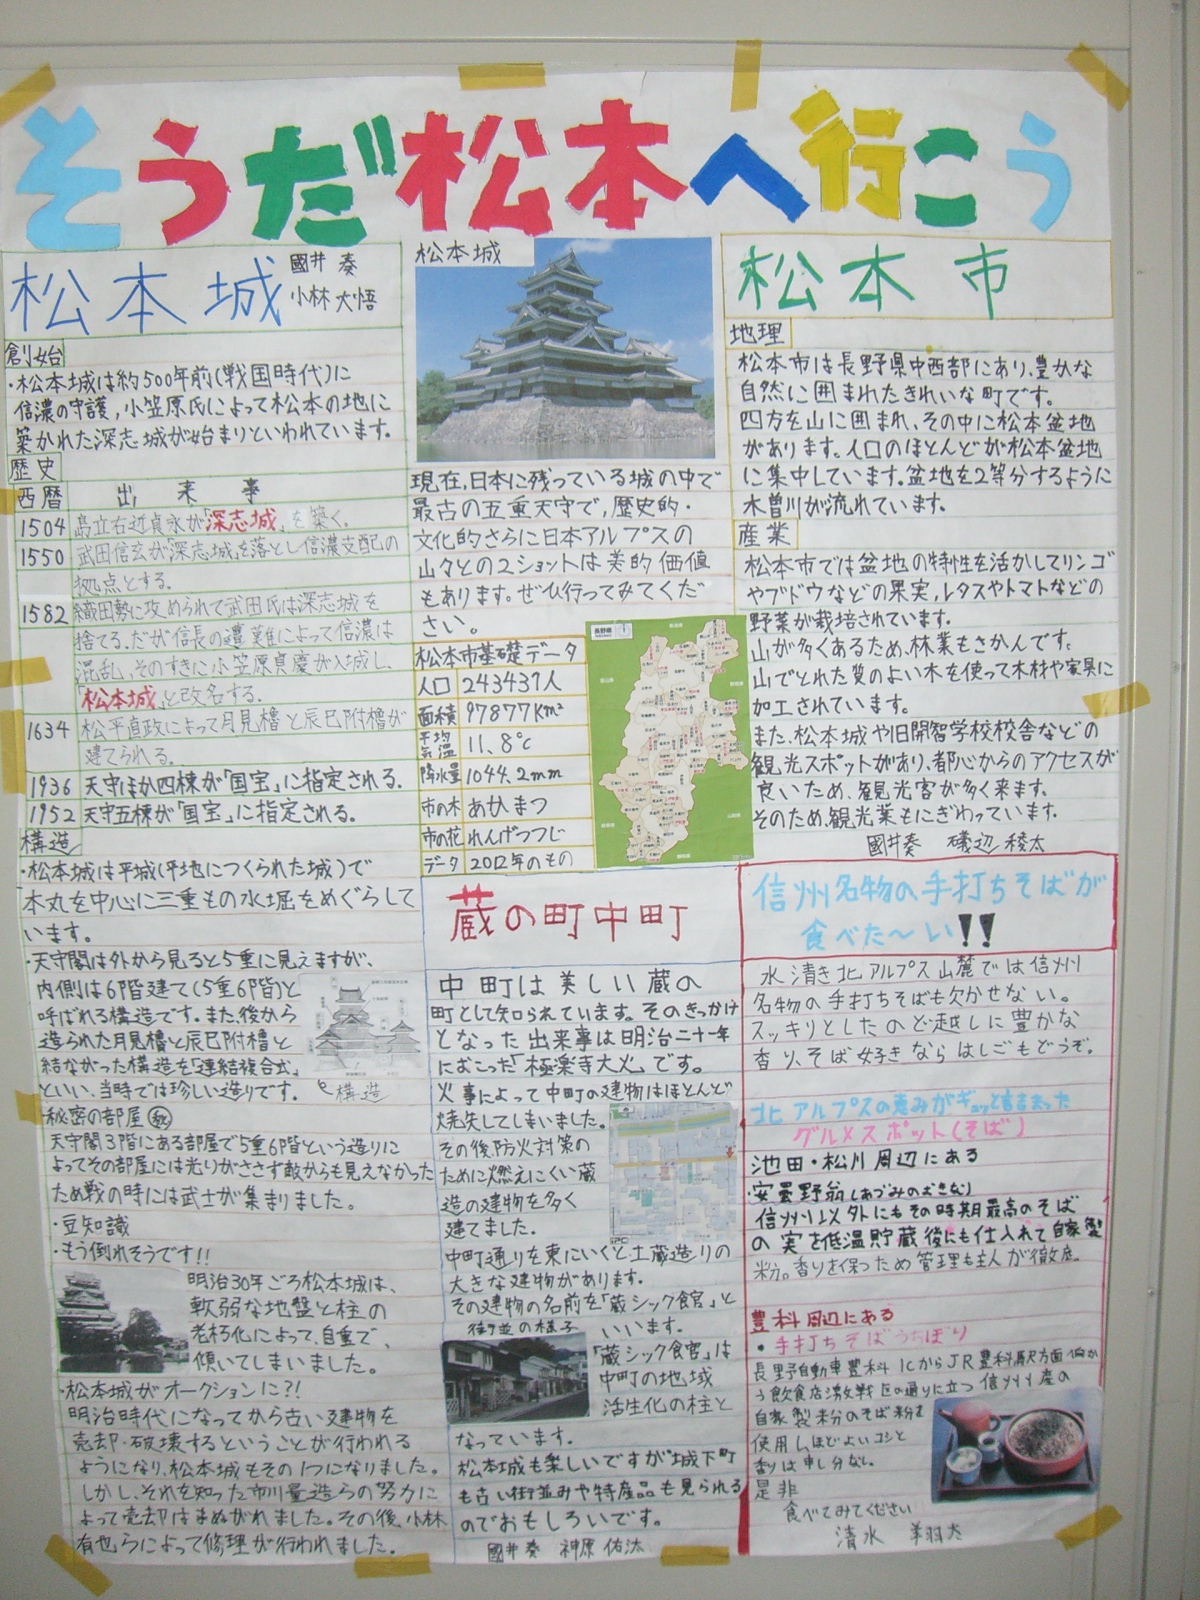 そうだ松本へ行こう
松本城
國井 奏
小林 大悟
創始
・松本城は約500年前(戦国時代)に
信濃の守護,小笠原氏によって松本の地に
築かれた深志城が始まりといわれています。
歴史
西暦 出来事
1504 島立右近貞永が「深志城」を築く。
1550 武田信玄が「深志城」を落とし信濃支配の
拠点とする。
1582 織田勢に攻められて武田氏は深志城を
捨てる。だが信長の遭難によって信濃は
混乱、そのすきに小笠原貞慶が入城し、
「松本城」と改名する。
1634 松平直政によって月見櫓と辰巳附櫓が
建てられる。
1936 天守ほか四棟が「国宝」に指定される。
1952 天守五棟が「国宝」に指定される。
構造
・松本城は平城(平地につくられた城)で
本丸を中心に三重もの水堀をめぐらして
います。
・天守閣は外から見ると5重に見えますが、
内側は6階建て(5重6階)と
呼ばれる構造です。また,後から
造られた月見櫓と辰巳附櫓と
結ながった構造を「連結複合式」
といい、当時では珍しい造りです。
構造
秘密の部屋㊙
天守閣3階にある部屋で5重6階という造りに
よってその部屋には光りがささず敵からも見えなかった
ため戦の時には武士が集まりました。
・豆知識
・もう倒れそうです!!
明治30年ごろ松本城は、
軟弱な地盤と柱の
老朽化によって、自重で、
傾いてしまいました。
・松本城がオークションに?!
明治時代になってから古い建物を
売却・破壊するということが行われる
ようになり、松本城もその1つになりました。
しかし、それを知った市川量造らの努力に
よって売却はまぬがれました。その後、小林
有也らによって修理が行われました。
松本城
現在,日本に残っている城の中で
最古の五重天守で,歴史的・
文化的さらに日本アルプスの
山々との2ショットは美的価値
もあります。ぜひ行ってみてくだ
さい。
松本市基礎データ
人口 243437人
面積 978.77Km²
平均気温 11.8℃
降水量 1044.2mm
市の木 あかまつ
市の花 れんげつつじ
データ 2012年のもの
長野県
蔵の町中町
中町は美しい蔵の
町として知られています。そのきっかけ
となった出来事は明治二十一年
におこった「極楽寺大火」です。
火事によって中町の建物はほとんど
焼失してしまいました。
その後防火対策の
ために燃えにくい蔵
造の建物を多く
建てました。
中町通りを東にいくと土蔵造りの
大きな建物があります。
その建物の名前を「蔵シック館」と
いいます。
街並の様子
「蔵シック館」は
中町の地域
活性化の柱と
なっています。
松本城も楽しいですが城下町
も古い街並みや特産品も見られる
のでおもしろいです。
國井奏 神原佑汰
松本市
地理
松本市は長野県中西部にあり,豊かな
自然に囲まれたきれいな町です。
四方を山に囲まれ、その中に松本盆地
があります。人口のほとんどが松本盆地
に集中しています。盆地を2等分するように
木曽川が流れています。
産業
松本市では盆地の特性を活かしてリンゴ
やブドウなどの果実,レタスやトマトなどの
野菜が栽培されています。
山が多くあるため、林業もさかんです。
山でとれた質のよい木を使って木材や家具に
加工されています。
また、松本城や旧開智学校校舎などの
観光スポットがあり、都心からのアクセスが
良いため、観光客が多く来ます。
そのため、観光業もにぎわっています。
國井奏 磯辺稜太
信州名物の手打ちそばが
食べた〜い!!
水清き北アルプス山麓では信州
名物の手打ちそばも欠かせない。
スッキリとしたのど越しに豊かな
香り、そば好きならはしごもどうぞ。
北アルプスの恵みがギュッと詰まった
グルメスポット(そば)
池田・松川周辺にある
・安曇野翁(あづみのおきな)
信州以外にもその時期最高のそば
の実を低温貯蔵後にも仕入れて自家製
粉。香りを保つため管理も主人が徹底。
豊科周辺にある
・手打ちそばうちぼり
長野自動車豊科ICからJR豊科駅方面向か
う飲食店激戦区の通りに立つ信州産の
自家製粉のそば粉を
使用しほどよいコシと
香りは申し分なし。
是非
食べてみてください
清水